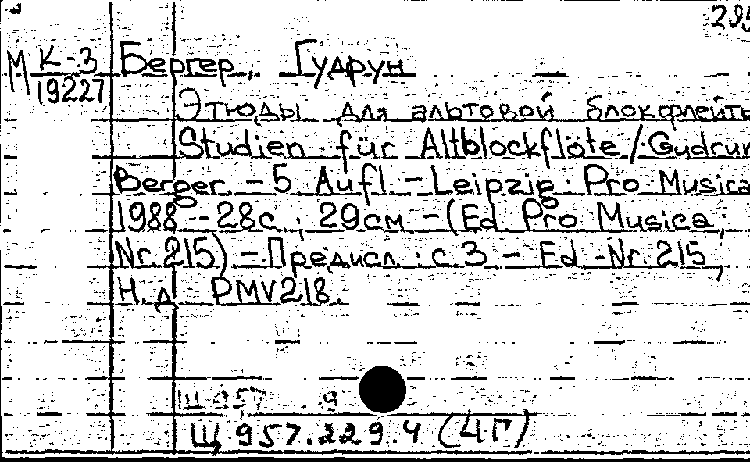 295
М К-3 Бергер, Гудрун
19227
Этюды для альтовой блокфлейты
Studien für Altblockflöte / Gudrun
Berger. – 5. Aufl. – Leipzig: Pro Musica
1988. – 28с.; 29см – (Ed. Pro Musica;
Nr. 215) – Предисл.: с. 3 – Ed.-Nr. 215,
Н.д. PMV218.
Щ 957. 9
Щ 957.229.4 (4Г)